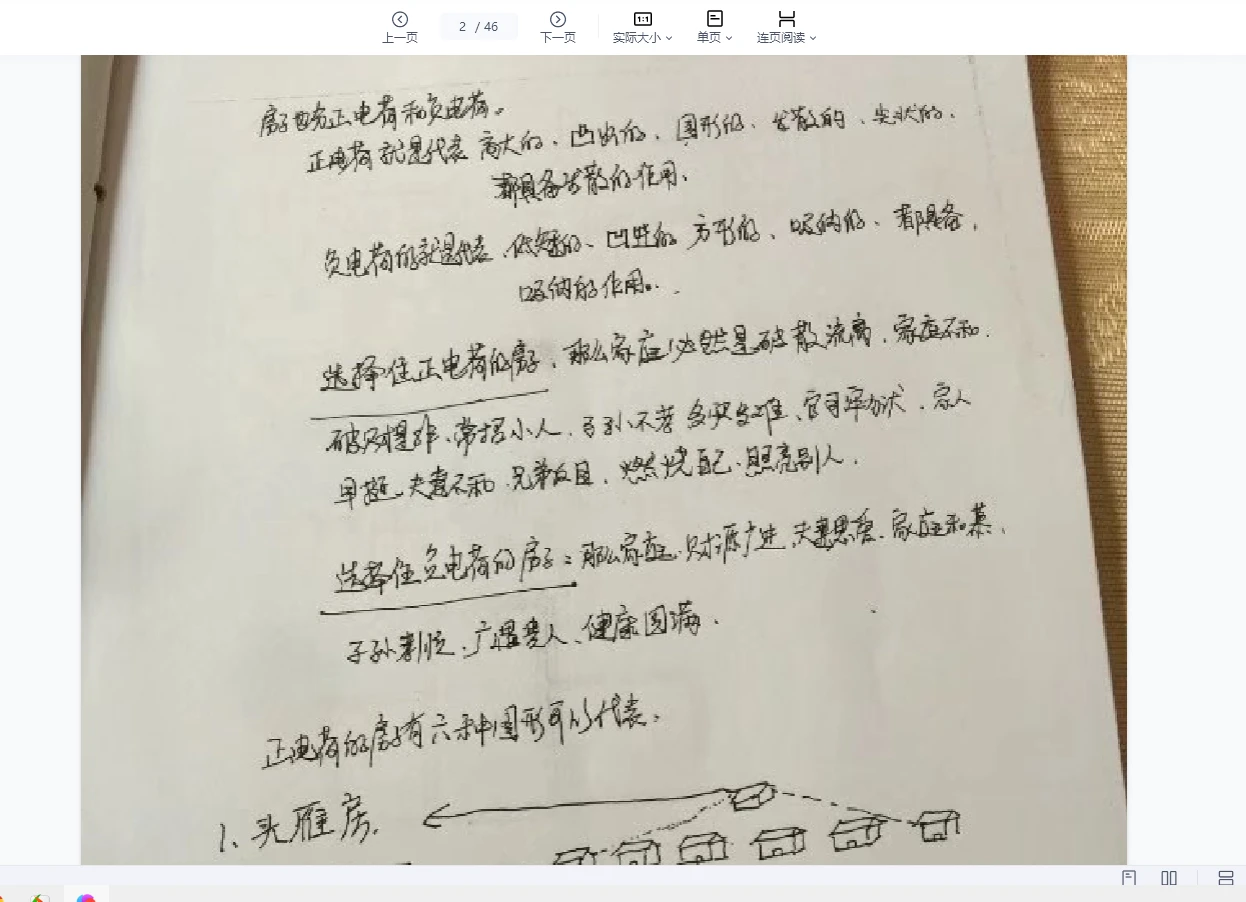 上一页
2 / 46
下一页
1:1
实际大小
单页
连页阅读
房子也分正电荷和负电荷。
正电荷就是代表高大的、凸出的、圆形的、发散的、尖状的、
都具备发散的作用、
负电荷的就是代表、低矮的、凹进的 方形的、吸纳的、都具备,
吸纳的作用。
选择住正电荷的房子,那么家庭必然是破散流离、家庭不和.
破财惹祸、常招小人、子孙不孝 多灾多难、官司牢狱、家人
早逝、夫妻不和、兄弟反目、燃烧自己、照亮别人.
选择住负电荷的房子:那么家庭、财源广进、夫妻恩爱、家庭和慕、
子孙孝顺、广遇贵人、健康圆满、
正电荷的房子有六种图形可以代表、
1、头雁房.